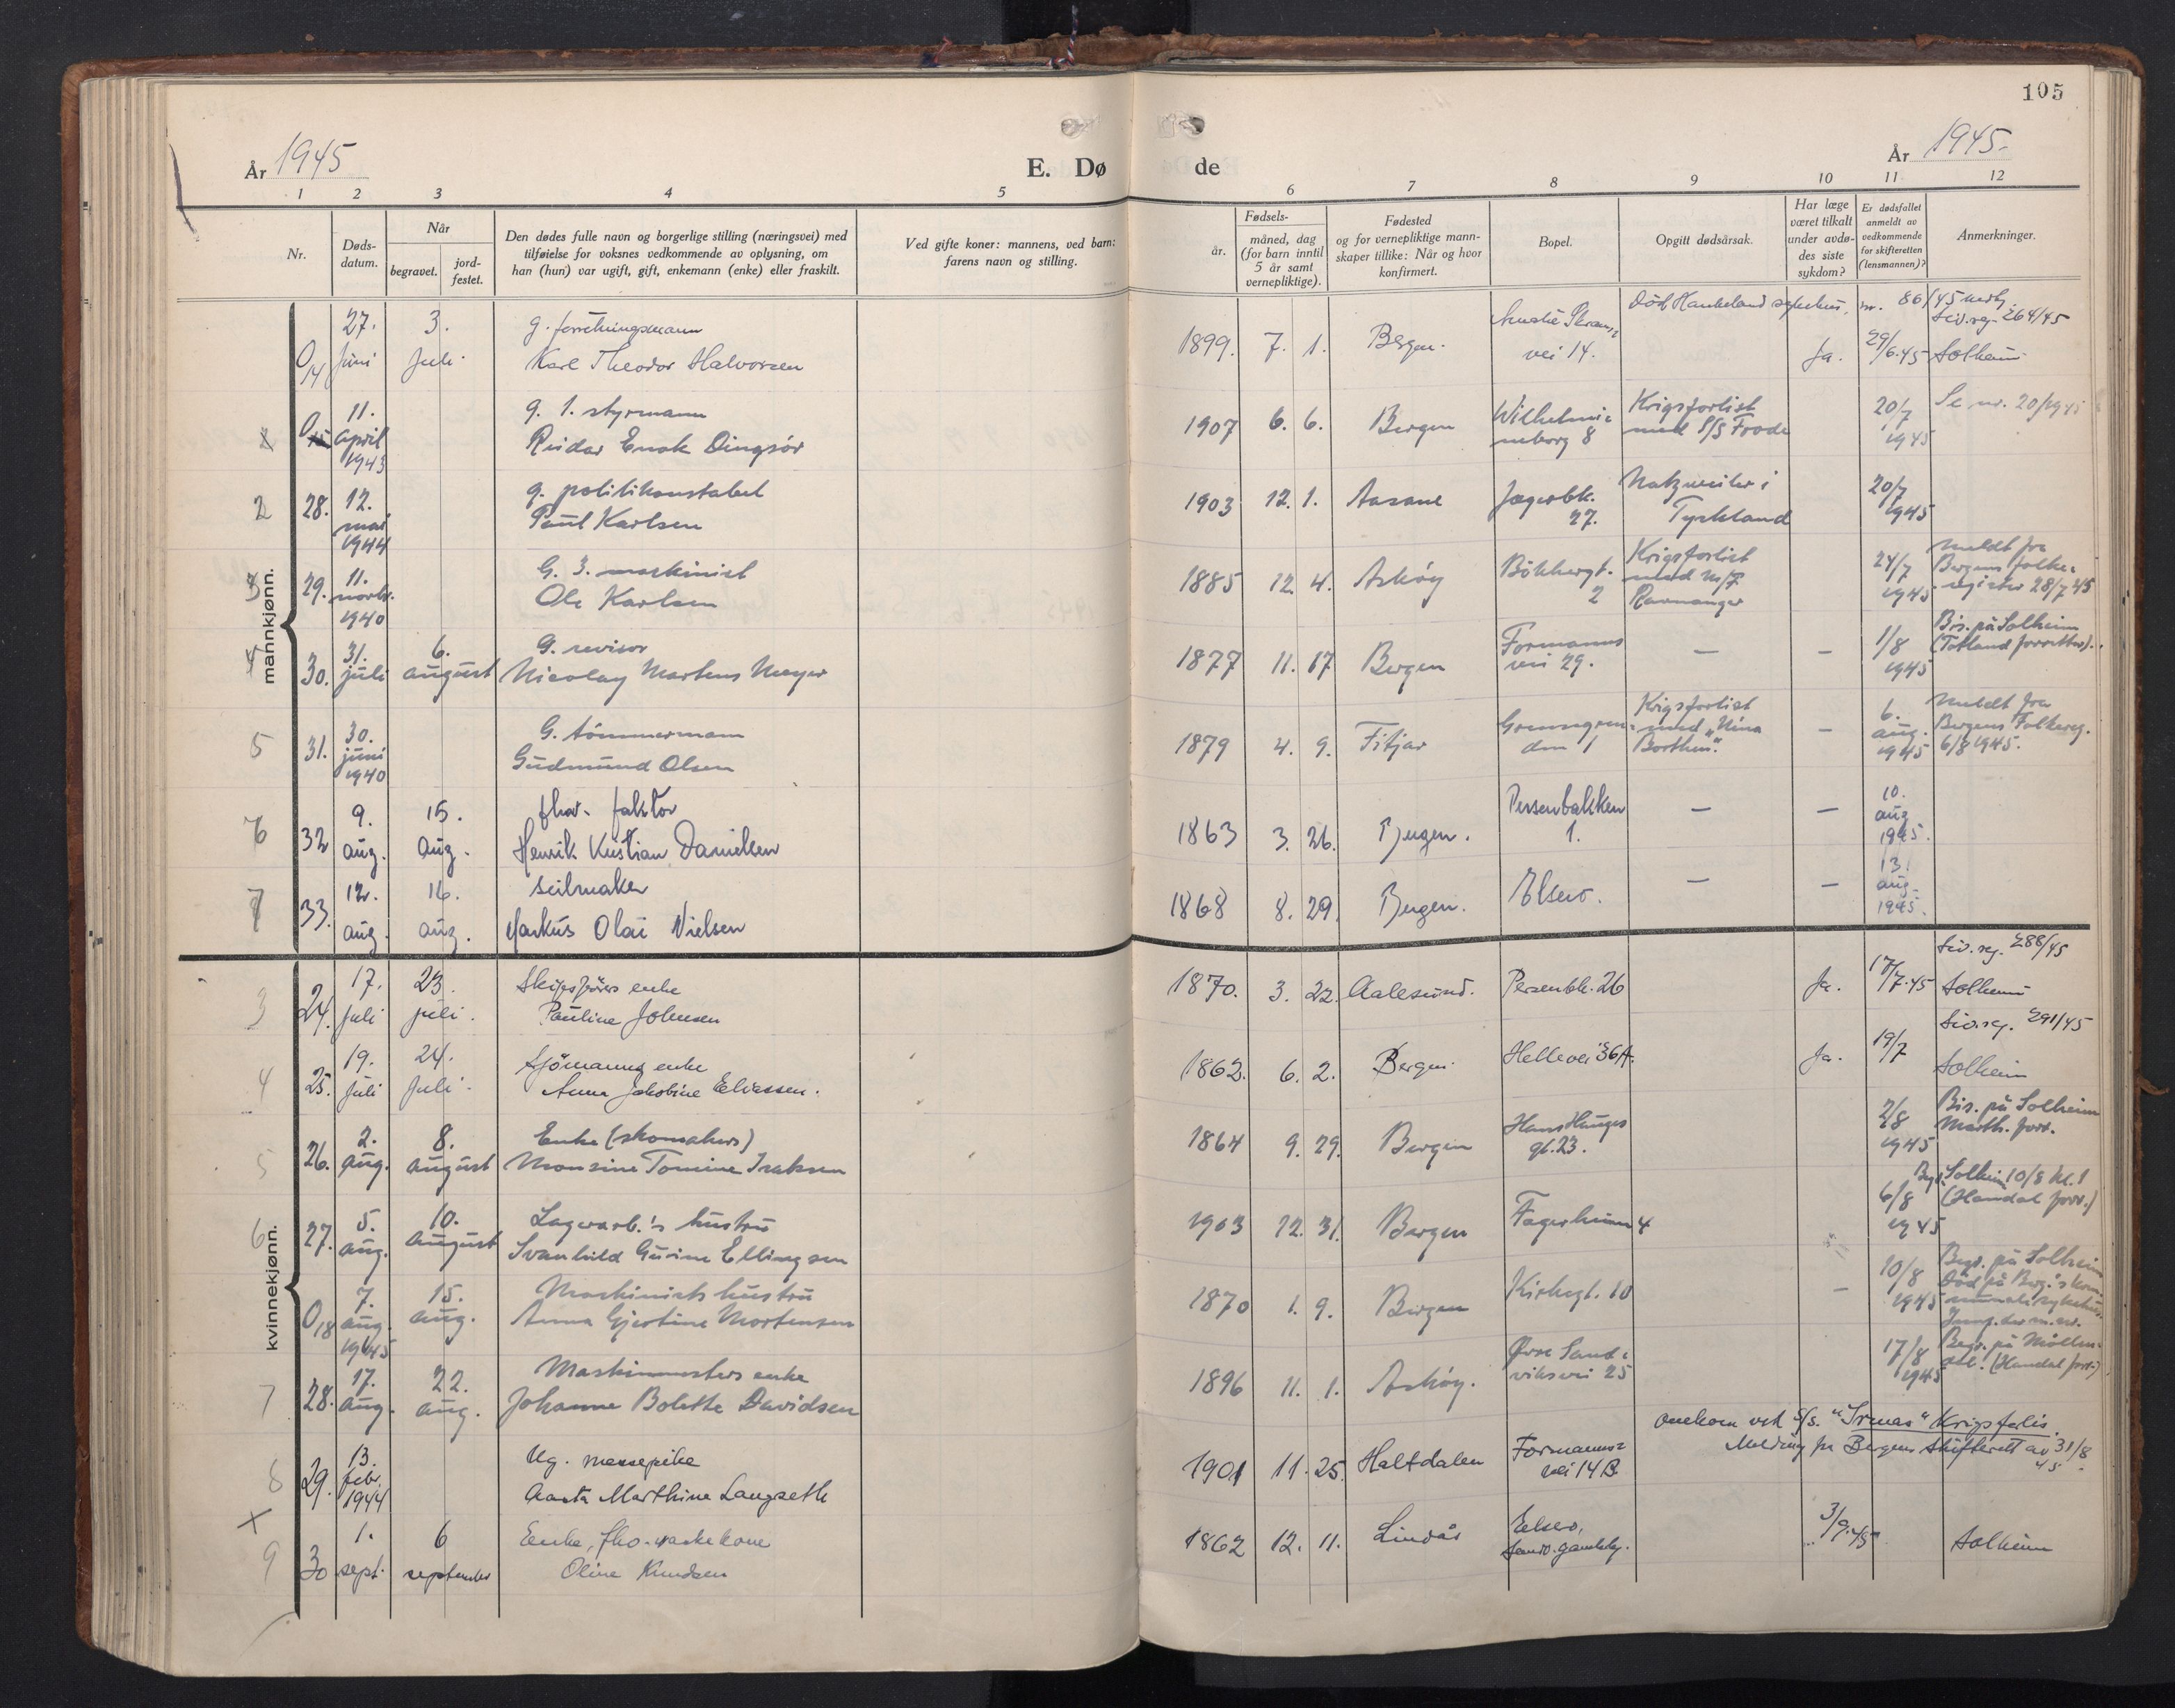 105
År 1945
E. Dø de
År 1945.
1 2 3 4 5 6 7 8 9 10 11 12
Nr.
Døds-
datum.
Når
begravet.
jord-
festet.
Den dødes fulle navn og borgerlige stilling (næringsvei) med
tilføielse for voksnes vedkommende av oplysning, om
han (hun) var ugift, gift, enkemann (enke) eller fraskilt.
Ved gifte koner: mannens, ved barn:
farens navn og stilling.
Fødsels-
år.
måned, dag
(for barn inntil
5 år samt
vernepliktige).
Fødested
og for vernepliktige mann-
skaper tillike: Når og hvor
konfirmert.
Bopel.
Opgitt dødsårsak.
Har læge
været tilkalt
under avdø-
des siste
sykdom?
Er dødsfallet
anmeldt av
vedkommende
for skifteretten
(lensmannen)?
Anmerkninger.
mannkjønn.
27. 3. g. forretningsmann Død Haukeland sykehus, nr. 86/45
0/14 juni juli Karl Theodor Halvorsen 1899. 7. 1. Bergen. vei 14. Ja. 29/6.45 Solheim
264/45
11. g. 1. styrmann Krigsforlist 20/7 Se nr. 20/1945
april Reidar Enok Dingsör 1907 6. 6. Bergen Wilhelmi-
neborg 8 med S/S Frode 1945
1943
2 28. 12. g. politikonstabel Natzweiler i 20/7
mai Paul Karlsen 1903 12. 1. Aasane Jægerbk.
27. Tyskland 1945
1944
3 29. 11. G. 3. maskinist Krigsforlist 24/7 meldt fra
novbr. Ole Karlsen 1885 12. 4. Askøy Bökkergt.
2 med M/F
Ravnanger 1945 Bergens folke-
register 28/7 45
1940
30. 31. 6. g. revisor Formanns
vei 29. — — 1/8 Bis. på Solheim
juli august Nicolay Martens Meyer 1877 11. 17 Bergen 1945 (Totland forrettet).
5 31. 30. G. tömmermann Krigsforlist 6. Meldt fra
juni Gudmund Olsen 1879 4. 9. Fitjar med „Nina
Borthen". — aug. Bergens Folkereg.
1940 1945 6/8 1945.
6 32 9. 15. fhv. faktor Persenbakken 10.
aug. aug. Henrik Kristian Daniellsen 1863 3. 26. Bergen. 1. — — aug.
1945.
7 33. 12. 16. seilmaker 13.
aug. aug. Markus Olai Nielsen 1868 8. 29. Bergen. Elsero. — — aug.
1945.
kvinnekjønn.
3 24. 17. 23. Skipsförers enke 288/45
juli juli. Pauline Johnsen 1870. 3. 22. Aalesund. Persenbk. 26 Ja. 17/7.45 Solheim
4 25. 19. 24. Sjömanns enke 291/45
juli juli. Anna Jakobine Eliassen. 1862. 6. 2. Bergen. Hellevei 36A. Ja. 19/7 Solheim
5 26. 2. 8. Enke (skomakers) Hans Hauges 2/8 Bis. på Solheim
aug. august Monsine Tomine Isaksen 1864 9. 29. Bergen gt. 23. 1945 Marth. forr.
6 27. 5. 10. Lagerarb.'s hustru 6/8 Begr. Solheim 10/8 kl. 1
aug. august Svanhild Gurine Ellingsen 1903 12. 31. Bergen Fagerheim 4 1945 (Handal forr.)
0/18 7. 15. Maskinists hustru 10/8 Begr. på Solheim
aug. aug. Anna Gjertine Mortensen 1870 1. 9. Bergen Kirkegt. 10 — 1945 Död på Berg.'s kom-
munale sykehus.
1945
7 28. 17. 22. Maskinmesters enke Øvre Sand- 17/8 Begr. på Möllen-
aug. aug. Johanne Bolette Davidsen 1896 11. 1. Askøy. viksvei 25 1945 dal. (Handal forr.)
8 29. 13. Ug. messepike omkom ved S/S. "Irma's" Krigsforlis.
febr. Aasta Marthine Langseth 1901 11. 25. Haltdalen Formanns-
vei 14 B. Melding fra Bergens skifterett av 31/8
45.
1944
9 30 1. 6 Enke, fhv. vaskekone Elsero, 3/9.45
sept. september Oline Knudsen 1862 12. 11. Lindås Sandv. gamleby. Solheim